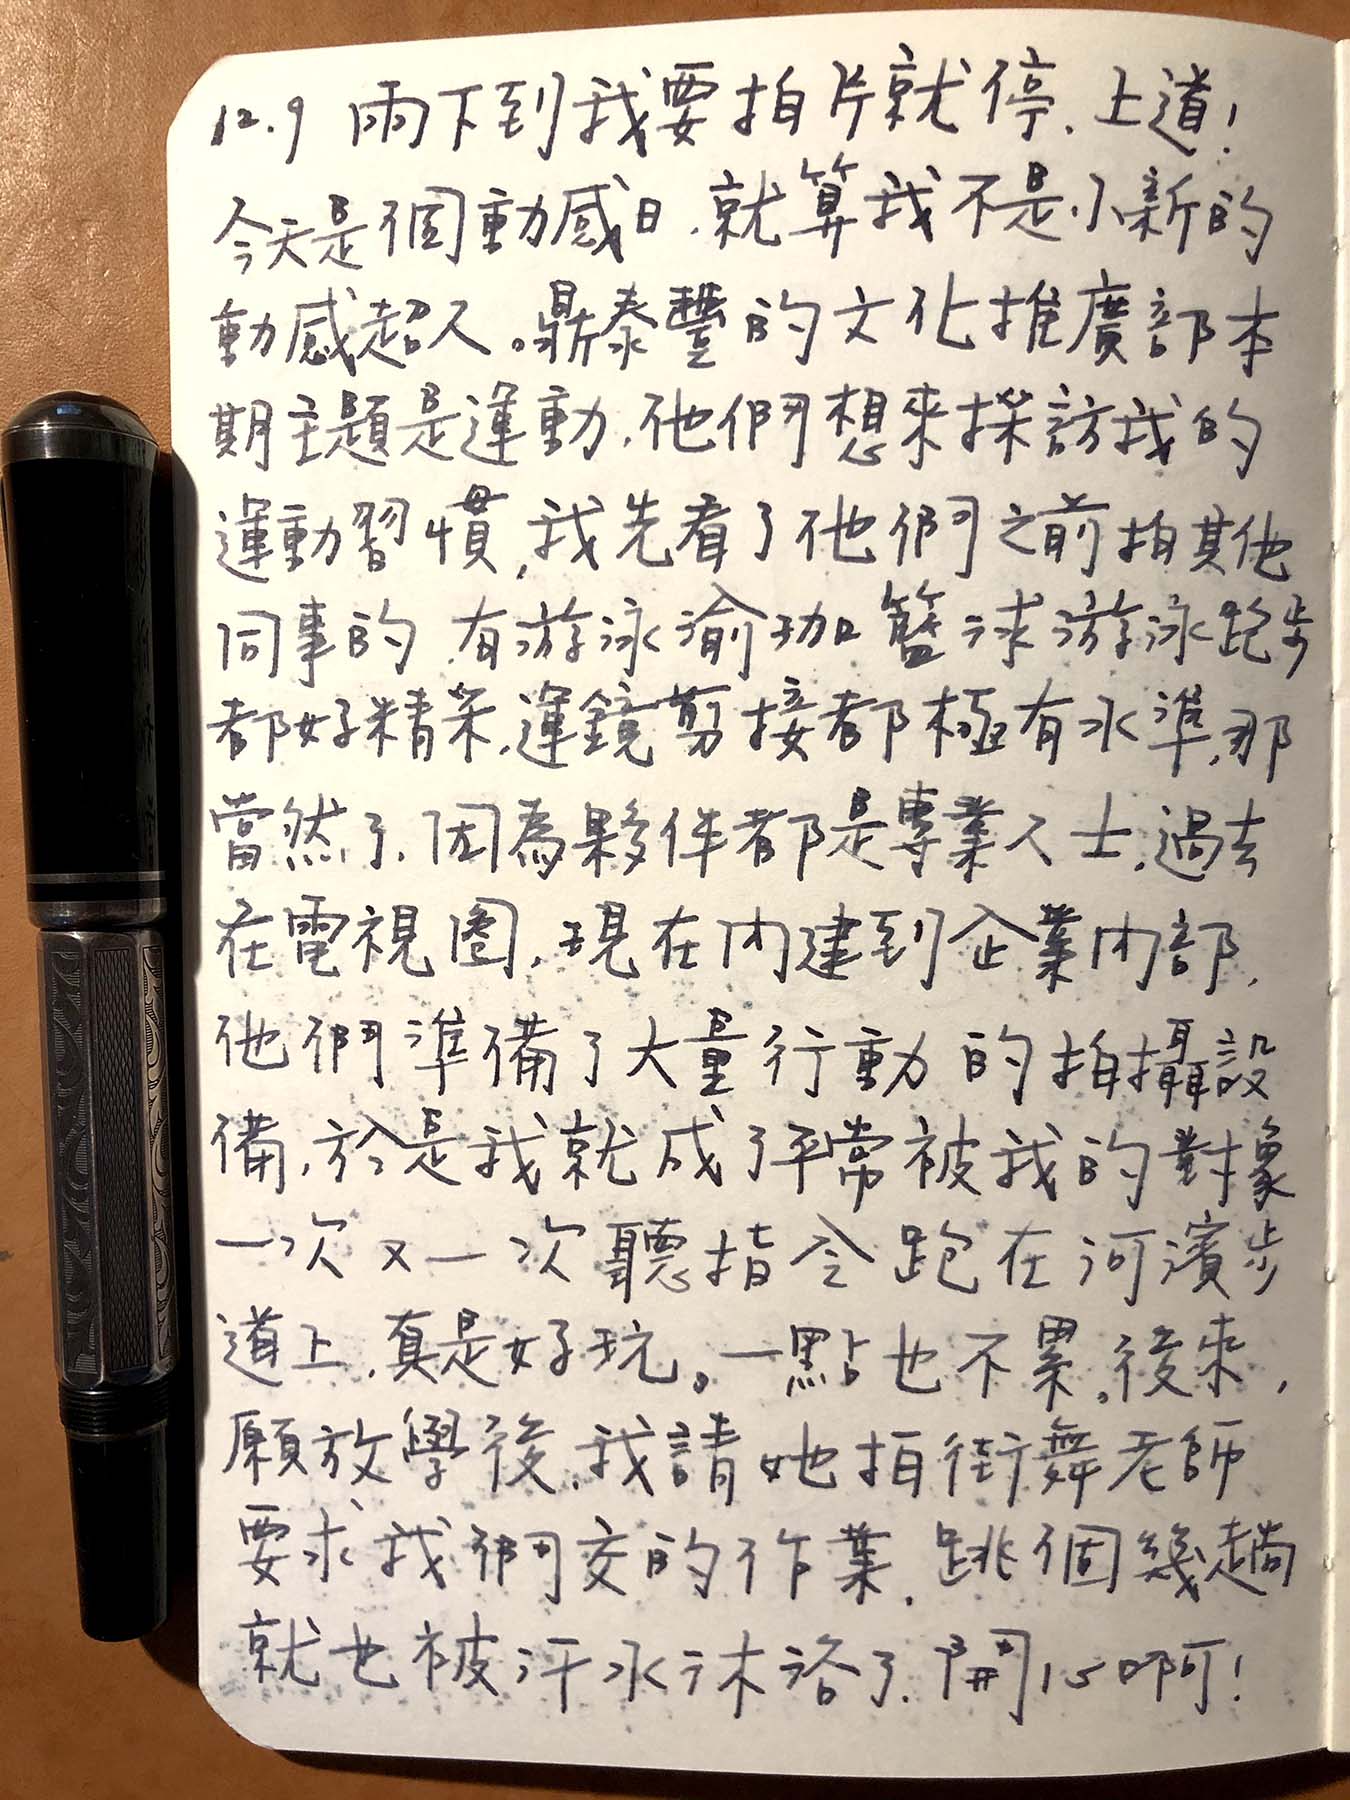 12.9 雨下到我要拍片就停、上道！
今天是個動感日，就算我不是小新的
動感超人。鼎泰豐的文化推廣部本
期主題是運動，他們想來採訪我的
運動習慣，我先看了他們之前拍其他
同事的，有游泳瑜珈籃球游泳跑步
都好精采，運鏡剪接都極有水準，那
當然了，因為夥伴都是專業人士，過去
在電視圈，現在內建到企業內部，
他們準備了大量行動的拍攝設
備，於是我就成了平常被我的對象
一次又一次聽指令跑在河濱步
道上，真是好玩。一點也不累。後來，
願放學後，我請她拍街舞老師
要求我們交的作業，跳個幾趟
就也被汗水沐浴了，開心啊！